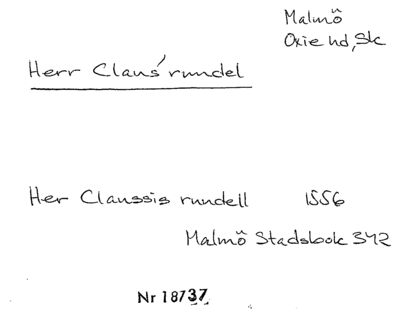 Malmö
Oxie hd, Sk
Herr Claus' rundel
Her Claussis rundell 1556
Malmö Stadsbok 342
Nr 18737